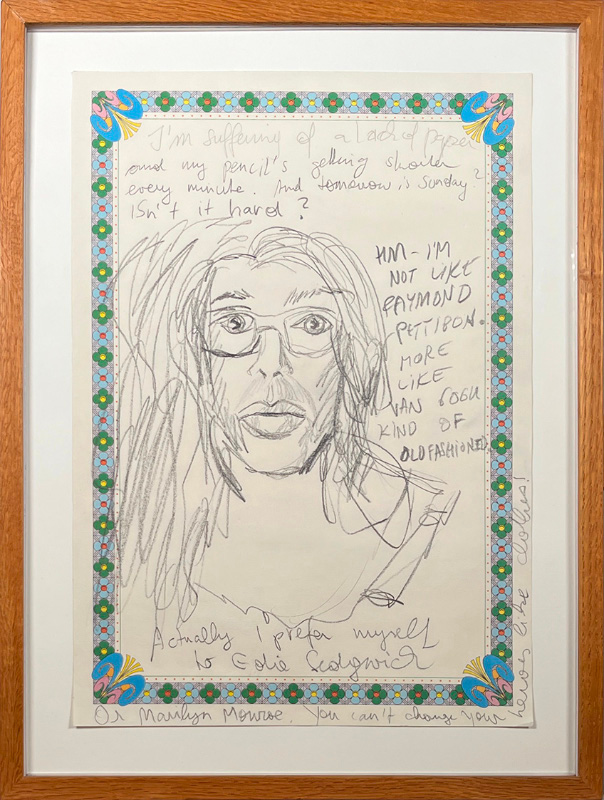 I'm suffering of a lack of paper
and my pencil's getting shorter
every minute. And tomorrow is Sunday?
ISn't it hard?
HM - I'M
NOT LIKE
RAYMOND
PETTIBON.
MORE
LIKE
VAN GOGH
KIND OF
OLDFASHIONED.
Actually I prefer myself
to Edie Sedgwick
Or Marilyn Monroe. You can't change your
heroes like clothes!